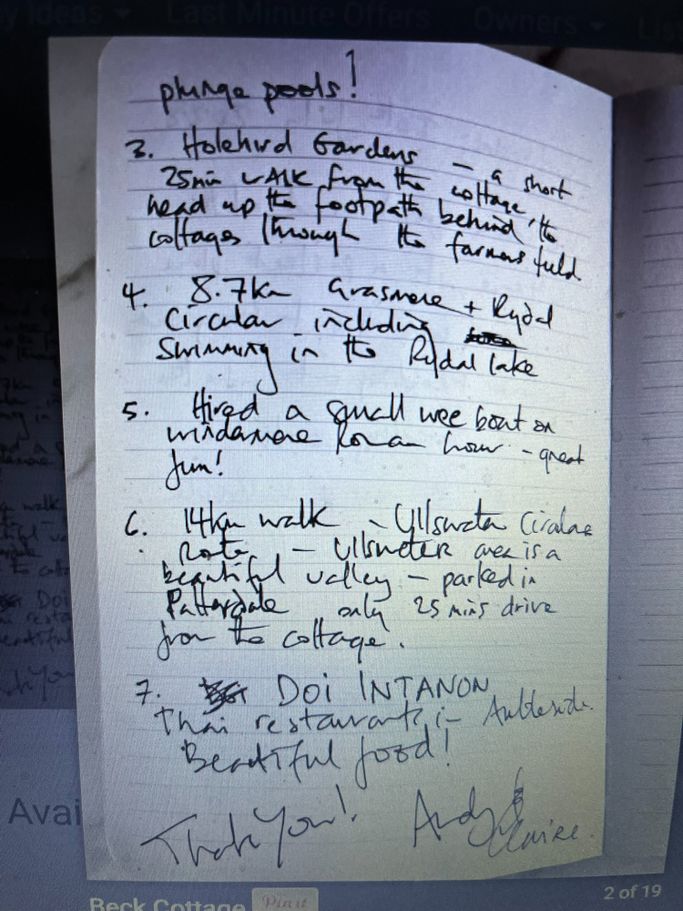 Ideas Last Minute Offers Owners
plunge pools!
3. Holehird Gardens – a short
25min WALK from the cottage,
head up the footpath behind the
cottages through the farmers field
4. 8.7km Grasmere + Rydal
Circular including
Swimming in the Rydal lake
5. Hired a small wee boat on
windamere for an hour - great
fun!
6. 14km walk - Ullswater Circular
Route – Ullswater area is a
beautiful valley – parked in
Patterdale only 25 mins drive
from the cottage.
7. DOI INTANON
Thai restaurant in Ambleside.
Beautiful food!
Thank You! Andy &
Claire.
Avai
Beck Cottage Pin it
2 of 19